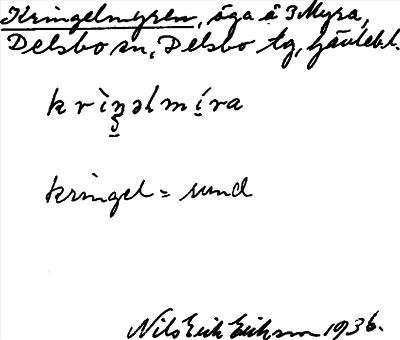 Kringelmyren, äga å 3 Myra,
Delsbo sn, Delsbo tg, Gävlebl.
krìŋəlmíra
kringel = rund
Nils Erik Erikson 1936.